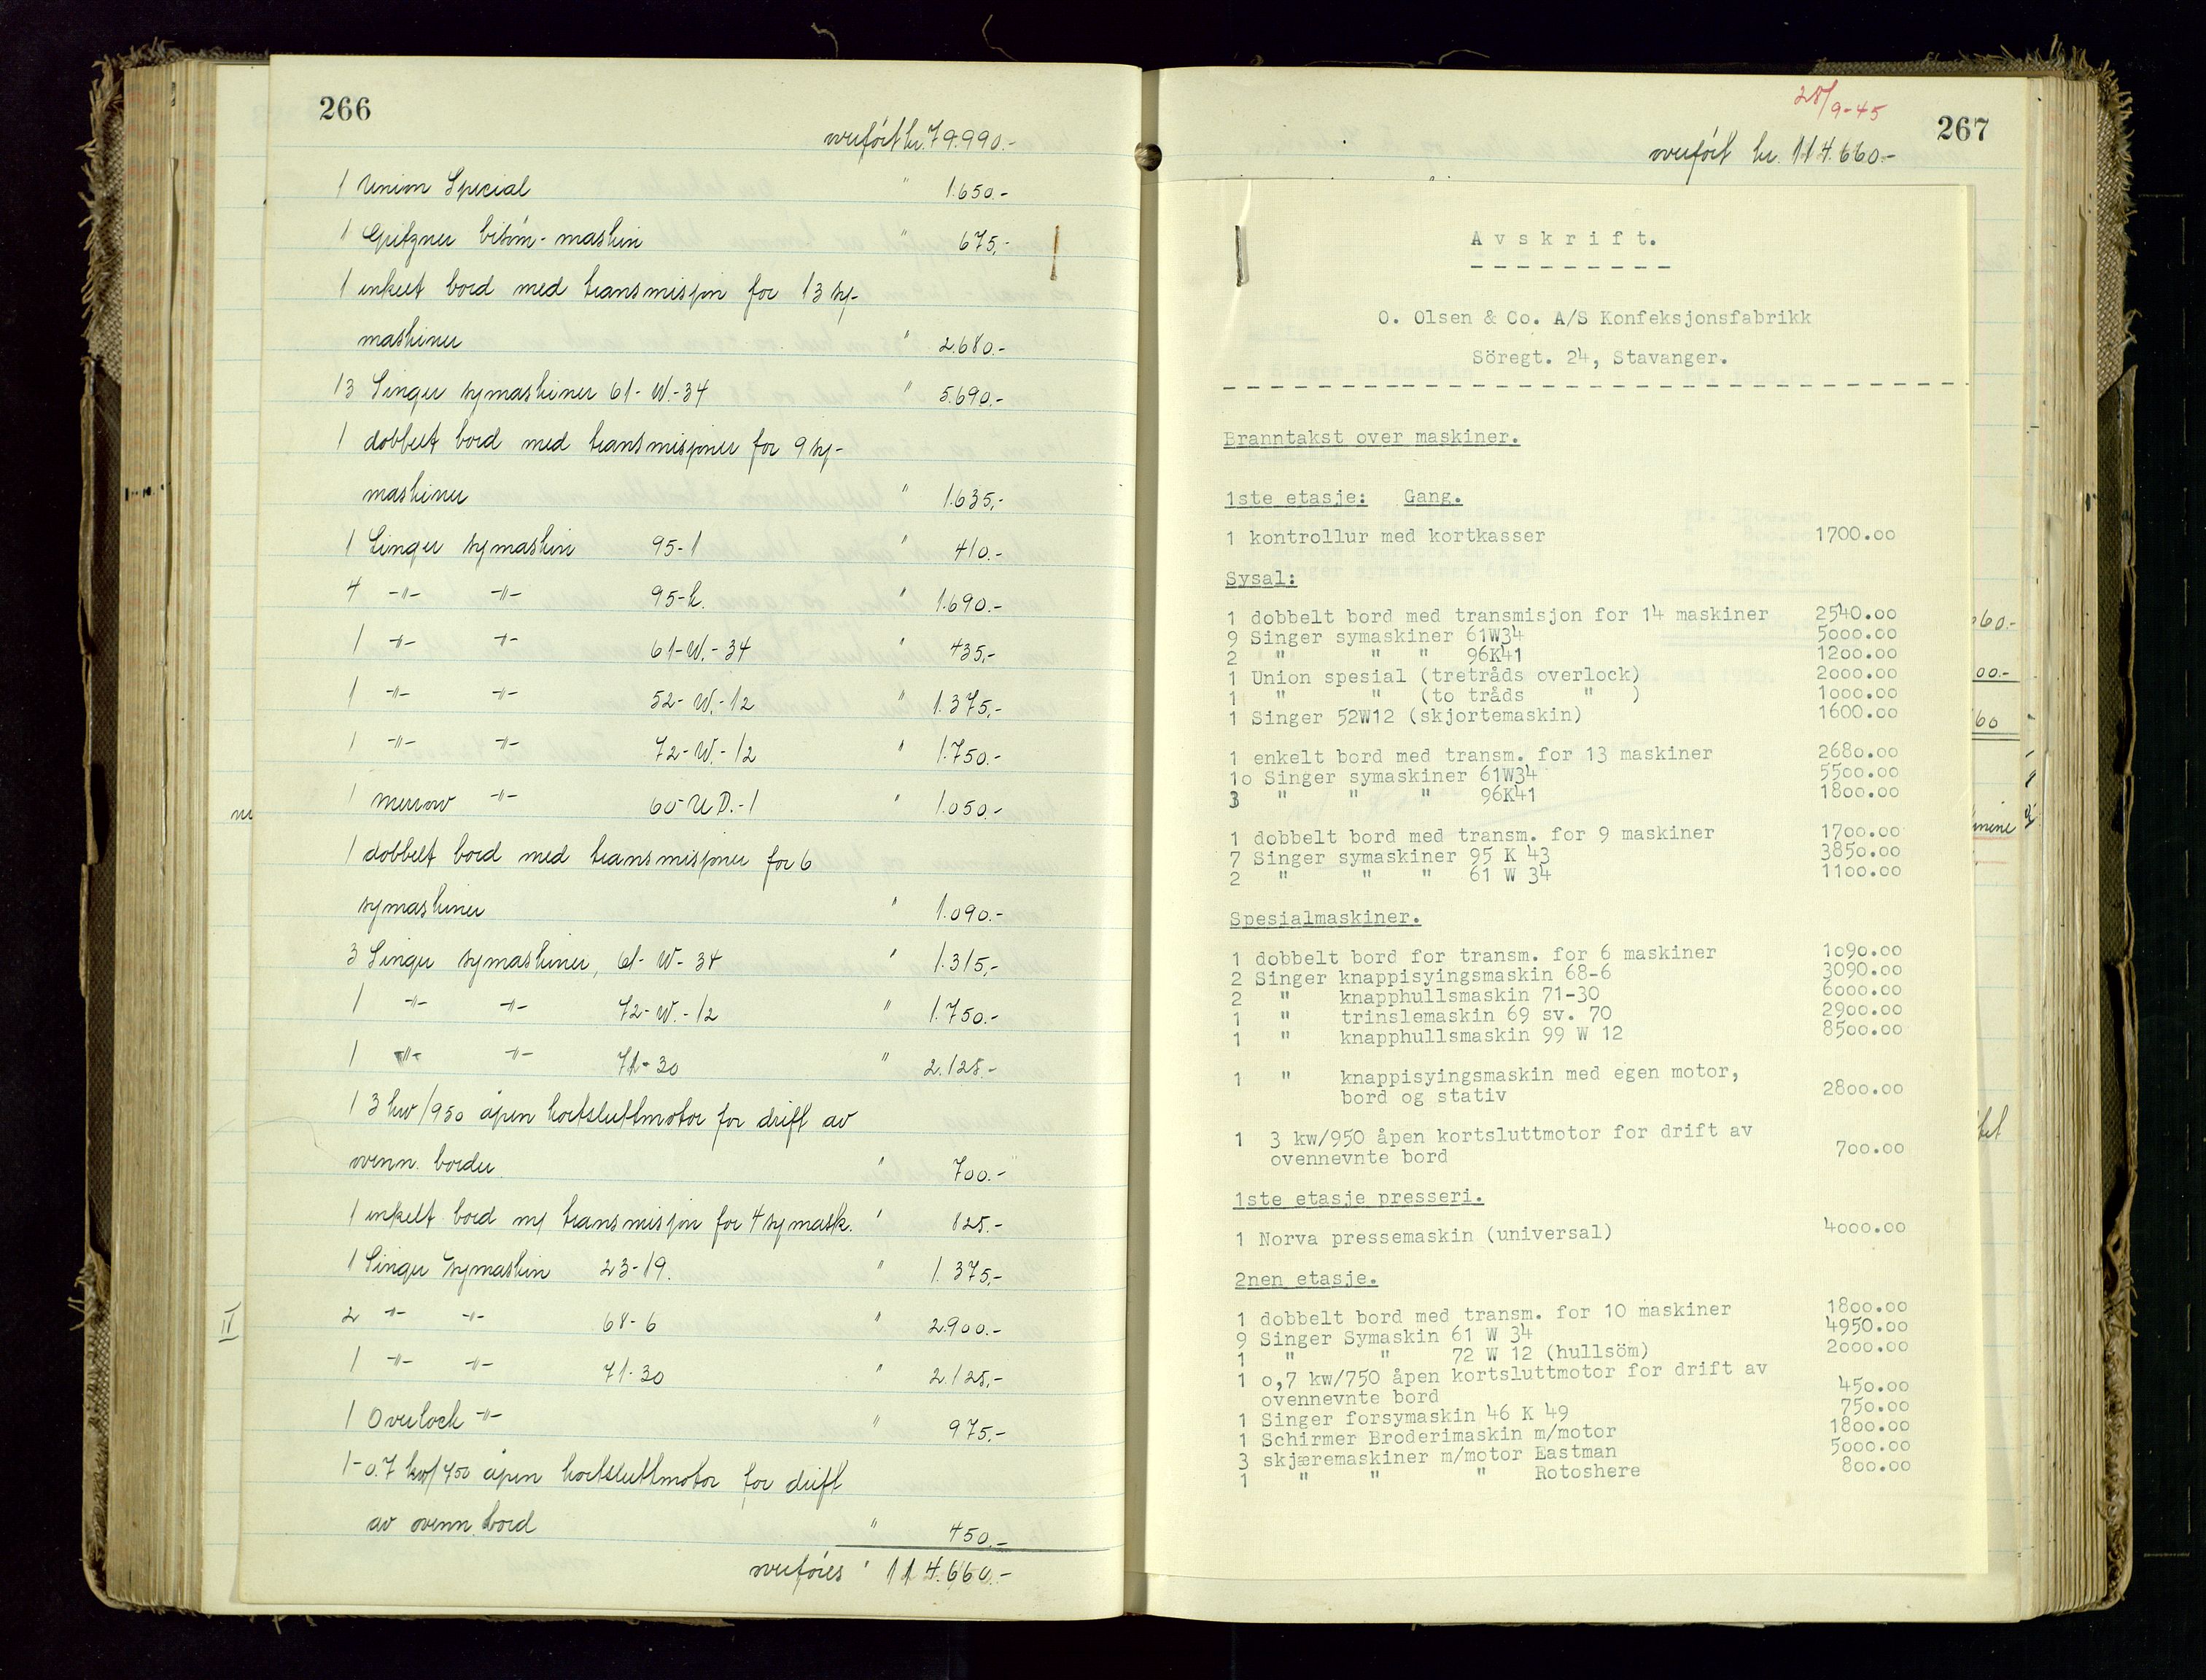 266
overført kr. 79.990.-
1 Union Special " 1.650.-
1 Gritzner bisöm-maskin " 675.-
1 enkelt bord med transmisjon for 13 sy-
maskiner " 2.680.-
13 Singer symaskiner 61-W.-34 " 5.690.-
1 dobbelt bord med transmisjoner for 9 sy-
maskiner " 1.635.-
1 Singer symaskin 95-1 " 410.-
4 -"- -"- 95-k. " 1.690.-
1 -"- -"- 61-W.-34 " 435.-
1 -"- -"- 52-W.-12 " 1.375.-
1 -"- -"- 72-W.-12 " 1.750.-
1 merrow -"- 60-U D.-1 " 1.050.-
1 dobbelt bord med transmisjoner for 6
symaskiner " 1.090.-
3 Singer symaskiner, 61-W-34 " 1.315.-
1 -"- -"- 72-W.-12 " 1.750.-
1 -"- -"- 71-30 " 2.125.-
1 3 kw/950 åpen kortsluttmotor for drift av
ovenn. border. " 700.-
1 enkelt bord m/ transmisjon for 4 symask. " 825.-
1 Singer symaskin 23-19. " 1.375.-
2 -"- -"- 68-6 " 2.900.-
1 -"- -"- 71-30 " 2.125.-
1 Overlock -"- " 975.-
1-0.7 kw/750 åpen kortsluttmotor for drift
av ovenn. bord " 450.-
overføres " 114.660.-
28/9-45
267
overført kr. 114.660.-
Avskrift.
O. Olsen & Co. A/S Konfeksjonsfabrikk
Söregt. 24, Stavanger.
Branntakst over maskiner.
1ste etasje: Gang.
1 kontrollur med kortkasser 1700.00
Sysal:
1 dobbelt bord med transmisjon for 14 maskiner 2540.00
9 Singer symaskiner 61W34 5000.00
2 " " " 96K41 1200.00
1 Union spesial (tretråds overlock) 2000.00
1 " " (to tråds " ) 1000.00
1 Singer 52W12 (skjortemaskin) 1600.00
1 enkelt bord med transm. for 13 maskiner 2680.00
10 Singer symaskiner 61W34 5500.00
3 " " " 96K41 1800.00
1 dobbelt bord med transm. for 9 maskiner 1700.00
7 Singer symaskiner 95 K 43 3850.00
2 " " " 61 W 34 1100.00
Spesialmaskiner.
1 dobbelt bord for transm. for 6 maskiner 1090.00
2 Singer knappisyingsmaskin 68-6 3090.00
2 " knapphullsmaskin 71-30 6000.00
1 " trinslemaskin 69 sv. 70 2900.00
1 " knapphullsmaskin 99 W 12 8500.00
1 " knappisyingsmaskin med egen motor,
bord og stativ 2800.00
1 3 kw/950 åpen kortsluttmotor for drift av
ovennevnte bord 700.00
1ste etasje presseri.
1 Norva pressemaskin (universal) 4000.00
2nen etasje.
1 dobbelt bord med transm. for 10 maskiner 1800.00
9 Singer Symaskin 61 W 34 4950.00
1 " " 72 W 12 (hullsöm) 2000.00
1 0,7 kw/750 åpen kortsluttmotor for drift av
ovennevnte bord 450.00
1 Singer forsymaskin 46 K 49 750.00
1 Schirmer Broderimaskin m/motor 1800.00
3 skjæremaskiner m/motor Eastman 5000.00
1 " " " Rotoshere 800.00